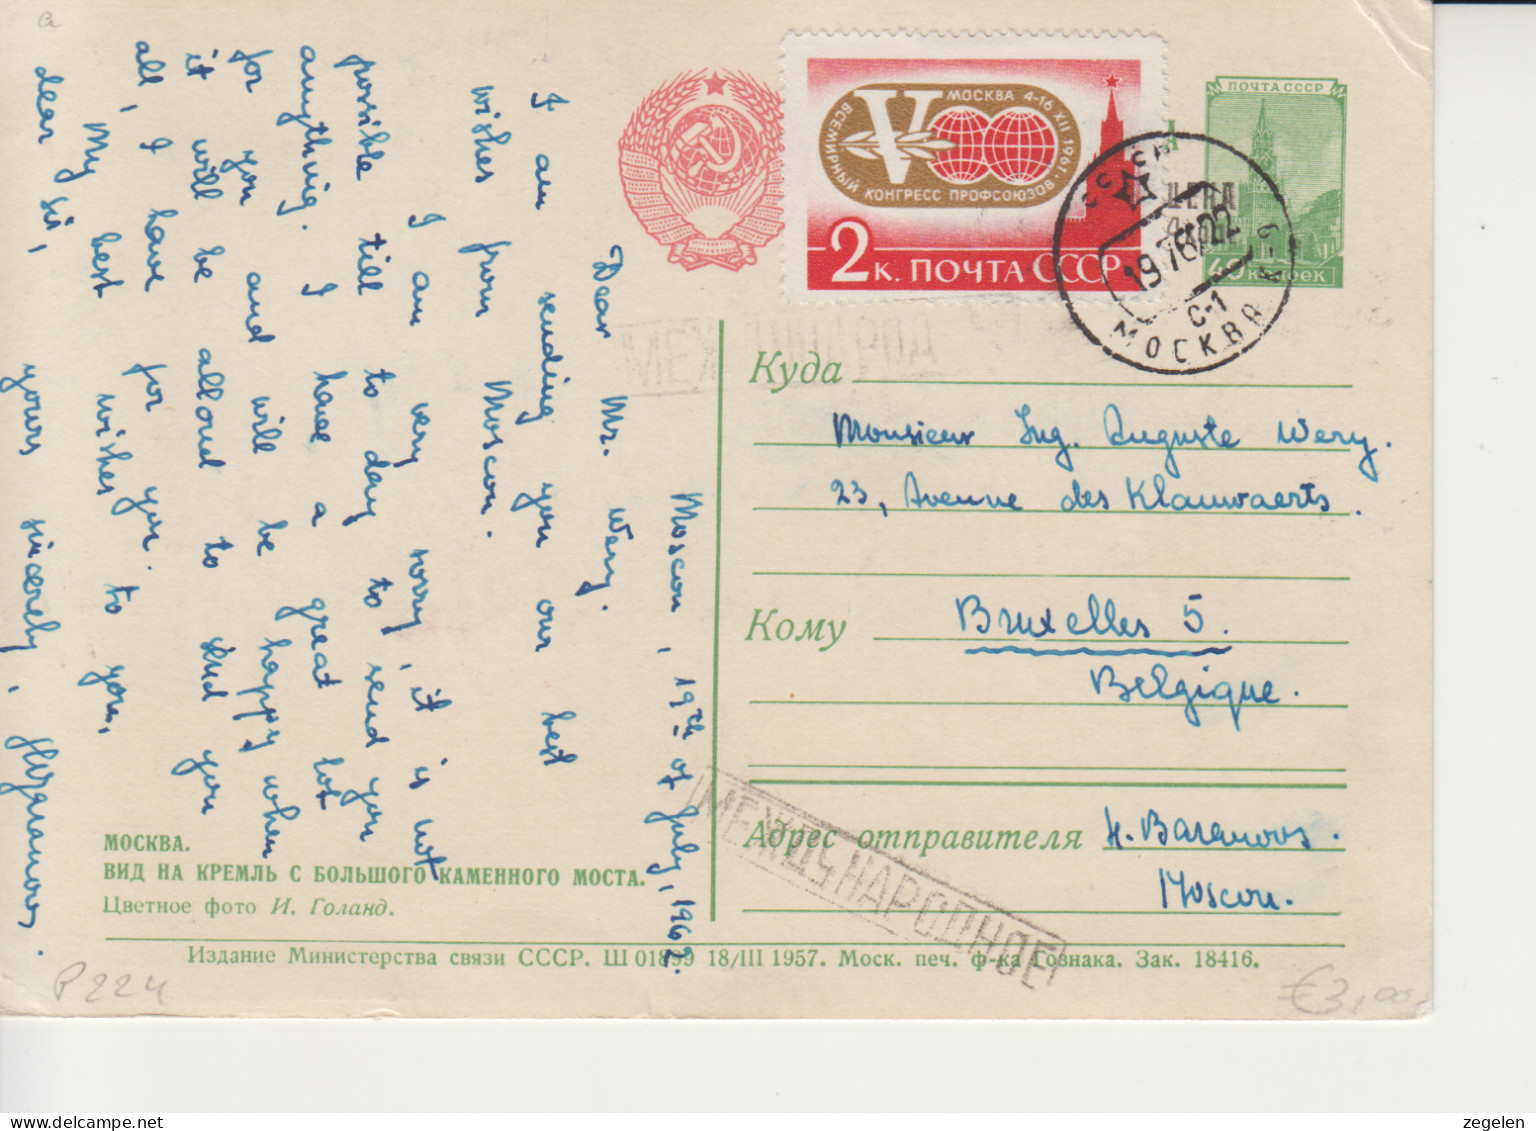 Moscow, 19th of July, 1962.
Dear Mr. Wery.
I am sending you our best
wishes from Moscow.
I am very sorry, it is not
possible till to day to send you
anything. I have a great lot
for you and will be happy when
it will be allowd to send you
all, I have for you.
My best wishes to you,
dear sir,
yours sincerely,
МОСКВА.
ВИД НА КРЕМЛЬ С БОЛЬШОГО КАМЕННОГО МОСТА.
Цветное фото И. Голанд.
ВСЕМИРНЫЙ КОНГРЕСС ПРОФСОЮЗОВ·
МОСКВА 4-16 XII 1961
V
2 К. ПОЧТА СССР
ПОЧТА СССР
40 копеек
ЦЕНА
СССР
МОСКВА
С-1
Куда
Monsieur Ing. Auguste Wery.
23, Avenue des Klauwaerts.
Кому
Bruxelles 5.
Belgique.
Адрес отправителя
H. Baranovs.
Moscow.
МЕЖДУНАРОДНОЕ
Издание Министерства связи СССР. Ш 01899 18/III 1957. Моск. печ. ф-ка Гознака. Зак. 18416.
P224
€3,00
a
zegelen